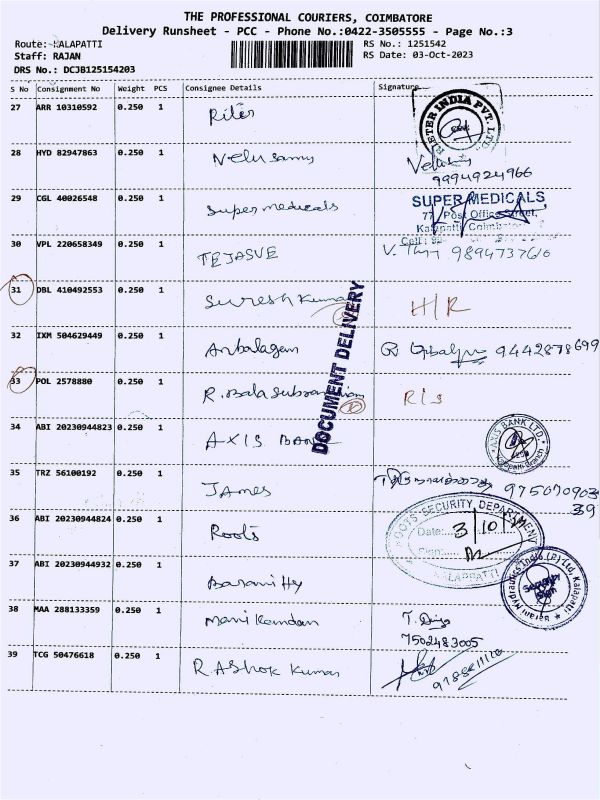 THE PROFESSIONAL COURIERS, COIMBATORE
Delivery Runsheet - PCC - Phone No.:0422-3505555 - Page No.:3
Route: KALAPATTI RS No.: 1251542
Staff: RAJAN RS Date: 03-Oct-2023
DRS No.: DCJB125154203
S No Consignment No Weight PCS Consignee Details Signature
27 ARR 10310592 0.250 1 Riter RIETER INDIA PVT. LTD.
28 HYD 82947863 0.250 1 Velusamy
9994924966
29 CGL 40026548 0.250 1 Supermedicals SUPER MEDICALS,
77, Post Office Street,
Kalapatti, Coimbatore
Cell :
30 VPL 220658349 0.250 1 TEJASVE 9894737610
31 DBL 410492553 0.250 1 Suresh Kumar H/R
DOCUMENT DELIVERY
32 IXM 504629449 0.250 1 Anbalagan 9442878699
33 POL 2578880 0.250 1 R. Balasubramaniam R/s
34 ABI 20230944823 0.250 1 AXIS BANK AXIS BANK LTD. Kalapatti Branch
35 TRZ 56100192 0.250 1 James 975070903
39
36 ABI 20230944824 0.250 1 Roots ROOTS SECURITY DEPARTMENT
Date: 3/10
Sign:
KALAPATTI
37 ABI 20230944932 0.250 1 Security
38 MAA 288133359 0.250 1 Manikandan T.
7502483005
39 TCG 50476618 0.250 1 R Ashok Kumar